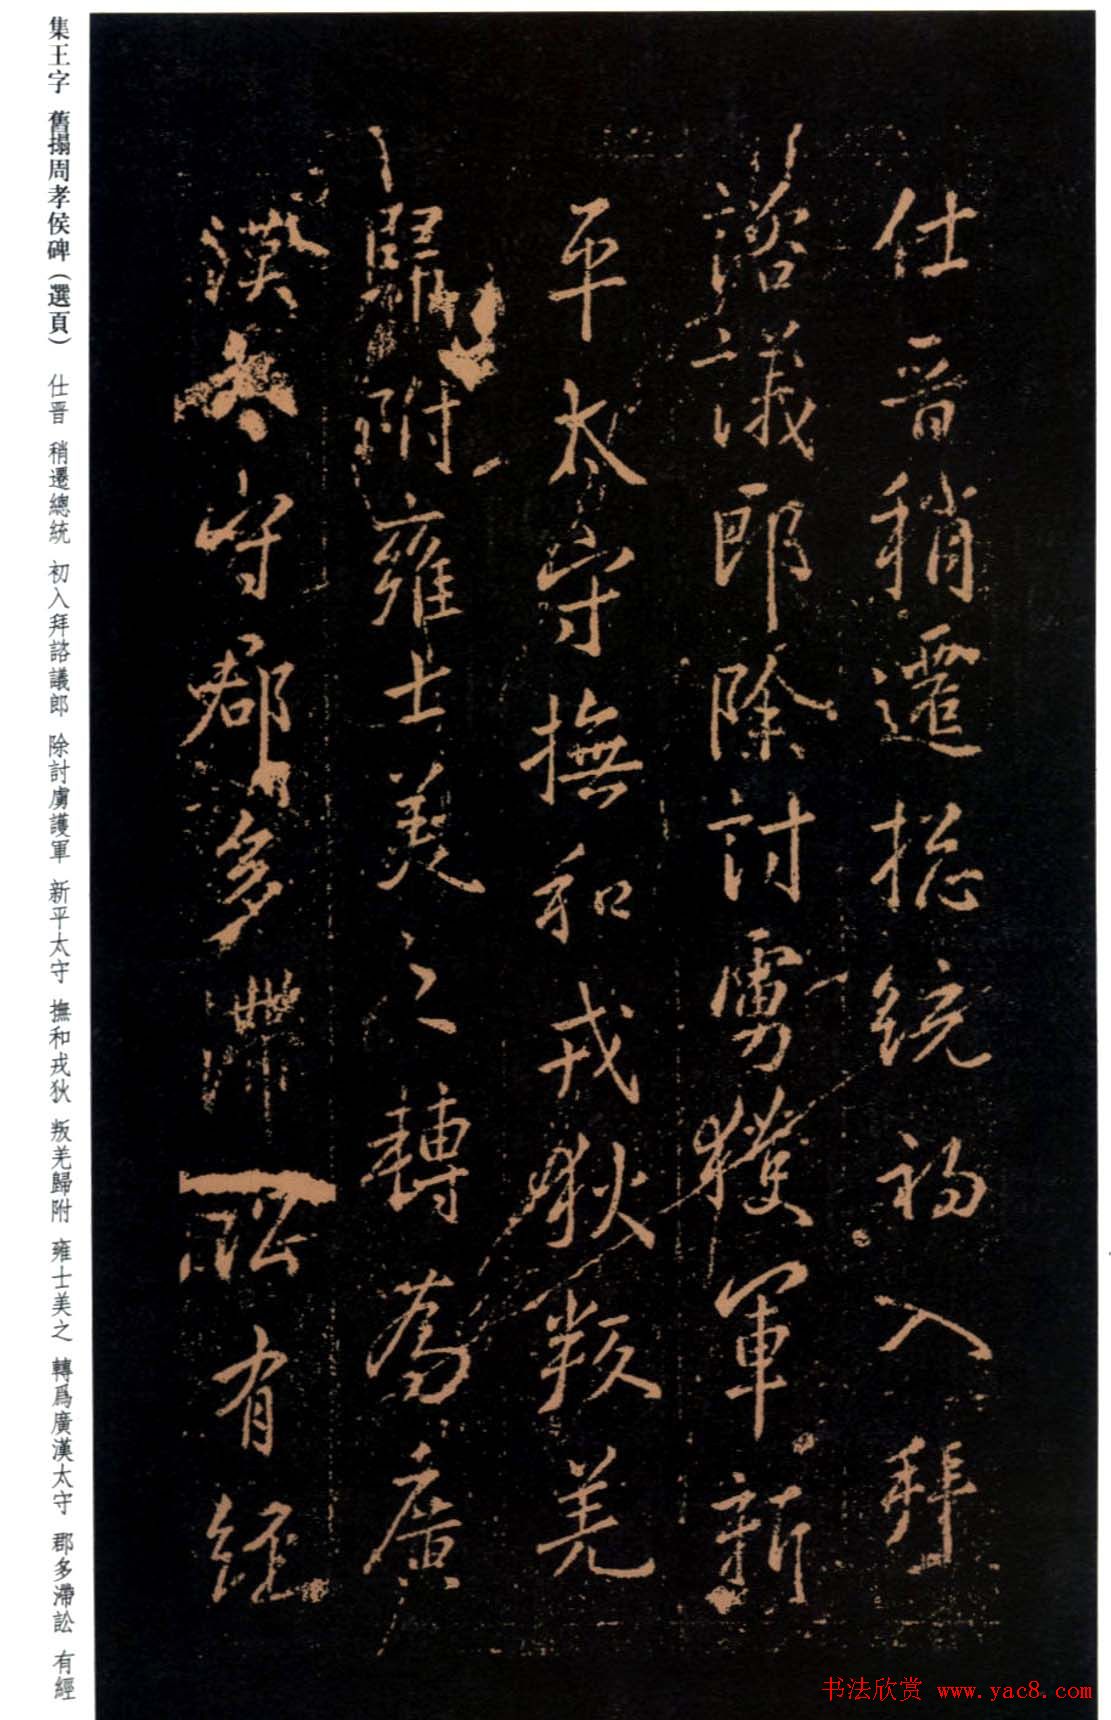 仕晋稍遷總統初入拜
諮議郎除討虜護軍新
平太守撫和戎狄叛羌
歸附雍士美之轉為廣
漢太守郡多滯訟有經
集王字 舊搨周孝侯碑(選頁) 仕晋 稍遷總統 初入拜諮議郎 除討虜護軍 新平太守 撫和戎狄 叛羌歸附 雍士美之 轉爲廣漢太守 郡多滯訟 有經
书法欣赏 www.yac8.com